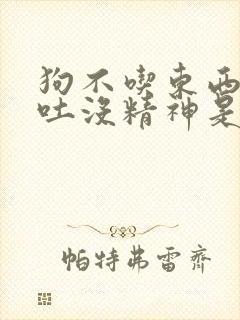 狗不喫東西
吐沒精神是
帕特弗雷齊